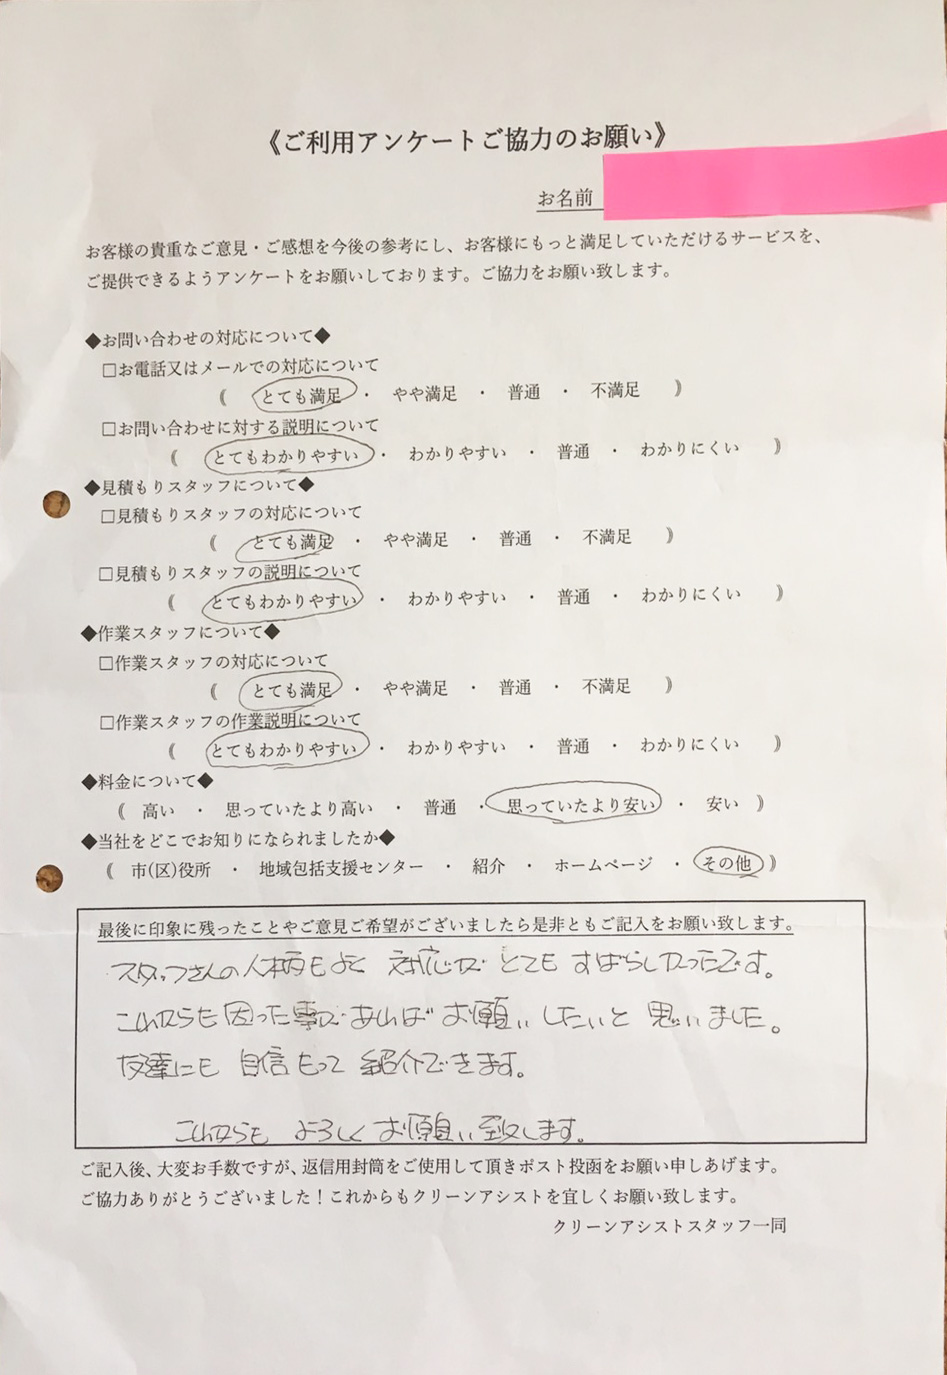 《ご利用アンケートご協力のお願い》
お名前
お客様の貴重なご意見・ご感想を今後の参考にし、お客様にもっと満足していただけるサービスを、
ご提供できるようアンケートをお願いしております。ご協力をお願い致します。
◆お問い合わせの対応について◆
□お電話又はメールでの対応について
《 とても満足 ・ やや満足 ・ 普通 ・ 不満足 》
□お問い合わせに対する説明について
《 とてもわかりやすい ・ わかりやすい ・ 普通 ・ わかりにくい 》
◆見積もりスタッフについて◆
□見積もりスタッフの対応について
《 とても満足 ・ やや満足 ・ 普通 ・ 不満足 》
□見積もりスタッフの説明について
《 とてもわかりやすい ・ わかりやすい ・ 普通 ・ わかりにくい 》
◆作業スタッフについて◆
□作業スタッフの対応について
《 とても満足 ・ やや満足 ・ 普通 ・ 不満足 》
□作業スタッフの作業説明について
《 とてもわかりやすい ・ わかりやすい ・ 普通 ・ わかりにくい 》
◆料金について◆
《 高い ・ 思っていたより高い ・ 普通 ・ 思っていたより安い ・ 安い 》
◆当社をどこでお知りになられましたか◆
《 市(区)役所 ・ 地域包括支援センター ・ 紹介 ・ ホームページ ・ その他 》
最後に印象に残ったことやご意見ご希望がございましたら是非ともご記入をお願い致します。
スタッフさんの人柄もよく 対応がとてもすばらしかったです。
これからも困った事があればお願いしたいと思いました。
友達にも自信もって紹介できます。
これからもよろしくお願い致します。
ご記入後、大変お手数ですが、返信用封筒をご使用して頂きポスト投函をお願い申しあげます。
ご協力ありがとうございました！これからもクリーンアシストを宜しくお願い致します。
クリーンアシストスタッフ一同